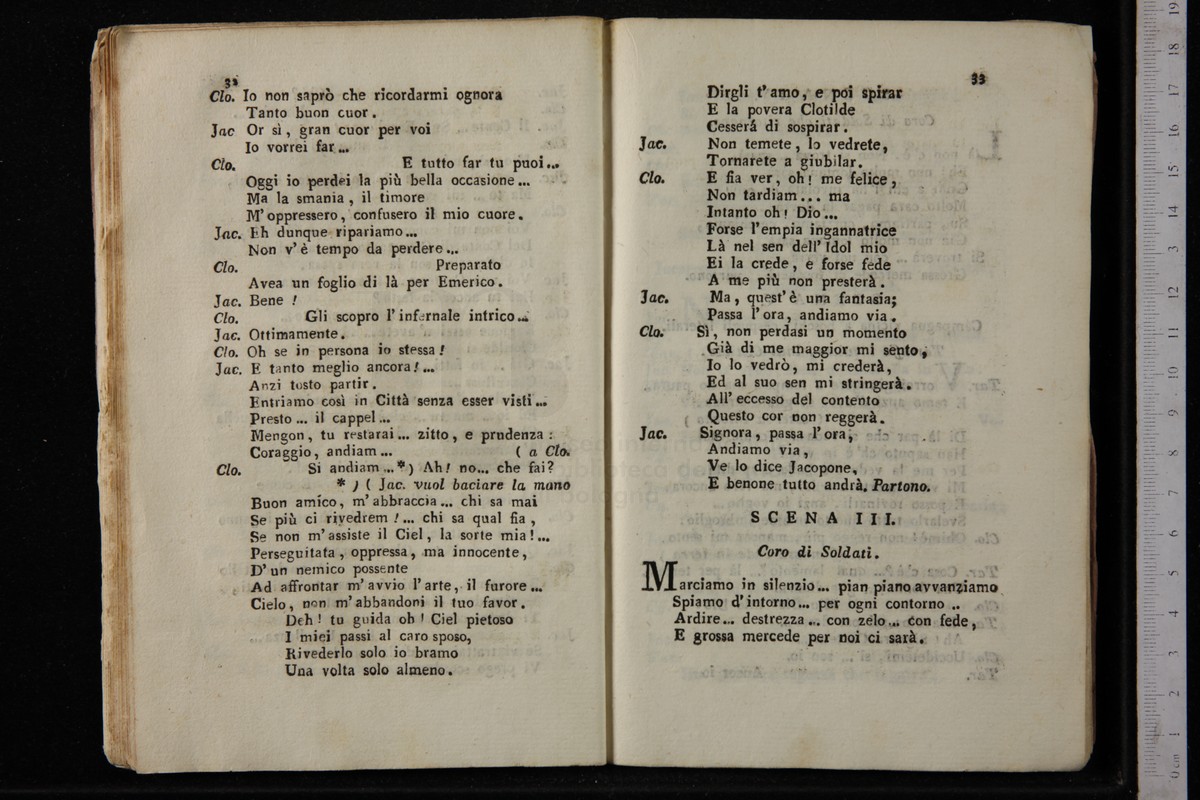 32
Clo. Io non saprò che ricordarmi ognora
Tanto buon cuor.
Jac Or sì, gran cuor per voi
Io vorrei far...
Clo. E tutto far tu puoi...
Oggi io perdei la più bella occasione...
Ma la smania, il timore
M'oppressero, confusero il mio cuore.
Jac. Eh dunque ripariamo...
Non v'è tempo da perdere...
Clo. Preparato
Avea un foglio di là per Emerico.
Jac. Bene!
Clo. Gli scopro l'infernale intrico...
Jac. Ottimamente.
Clo. Oh se in persona io stessa!
Jac. E tanto meglio ancora!...
Anzi tosto partir.
Entriamo così in Città senza esser visti...
Presto... il cappel...
Mengon, tu restarai... zitto, e prudenza:
Coraggio, andiam... ( a Clo.
Clo. Si andiam...*) Ah! no... che fai?
* ) ( Jac. vuol baciare la mano
Buon amico, m'abbraccia... chi sa mai
Se più ci rivedrem!... chi sa qual fia,
Se non m'assiste il Ciel, la sorte mia!...
Perseguitata, oppressa, ma innocente,
D'un nemico possente
Ad affrontar m'avvio l'arte, il furore...
Cielo, non m'abbandoni il tuo favor.
Deh! tu guida oh! Ciel pietoso
I miei passi al caro sposo,
Rivederlo solo io bramo
Una volta solo almeno.
33
Dirgli t'amo, e poi spirar
E la povera Clotilde
Cesserá di sospirar.
Jac. Non temete, lo vedrete,
Tornarete a giubilar.
Clo. E fia ver, oh! me felice,
Non tardiam... ma
Intanto oh! Dio...
Forse l'empia ingannatrice
Là nel sen dell'Idol mio
Ei la crede, e forse fede
A me più non presterà.
Jac. Ma, quest'è una fantasia;
Passa l'ora, andiamo via.
Clo. Sì, non perdasi un momento
Già di me maggior mi sento,
Io lo vedrò, mi crederà,
Ed al suo sen mi stringerà.
All'eccesso del contento
Questo cor non reggerà.
Jac. Signora, passa l'ora,
Andiamo via,
Ve lo dice Jacopone,
E benone tutto andrà. Partono.
SCENA III.
Coro di Soldati.
Marciamo in silenzio... pian piano avvanziamo
Spiamo d'intorno... per ogni contorno ..
Ardire... destrezza... con zelo... con fede,
E grossa mercede per noi ci sarà.